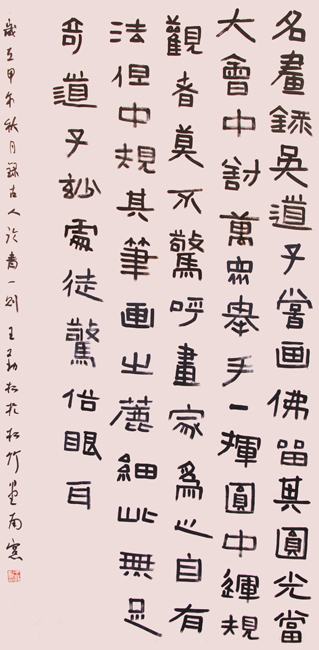 名畫錄吳道子嘗画佛留其圓光當
大會中對萬眾舉手一揮圓中運規
觀者莫不驚呼畫家為之自有
法但中規其筆画之麄細此無足
奇道子妙處徒驚俗眼耳
歲在甲午秋月錄古人論書一則王勤松於松竹南窗